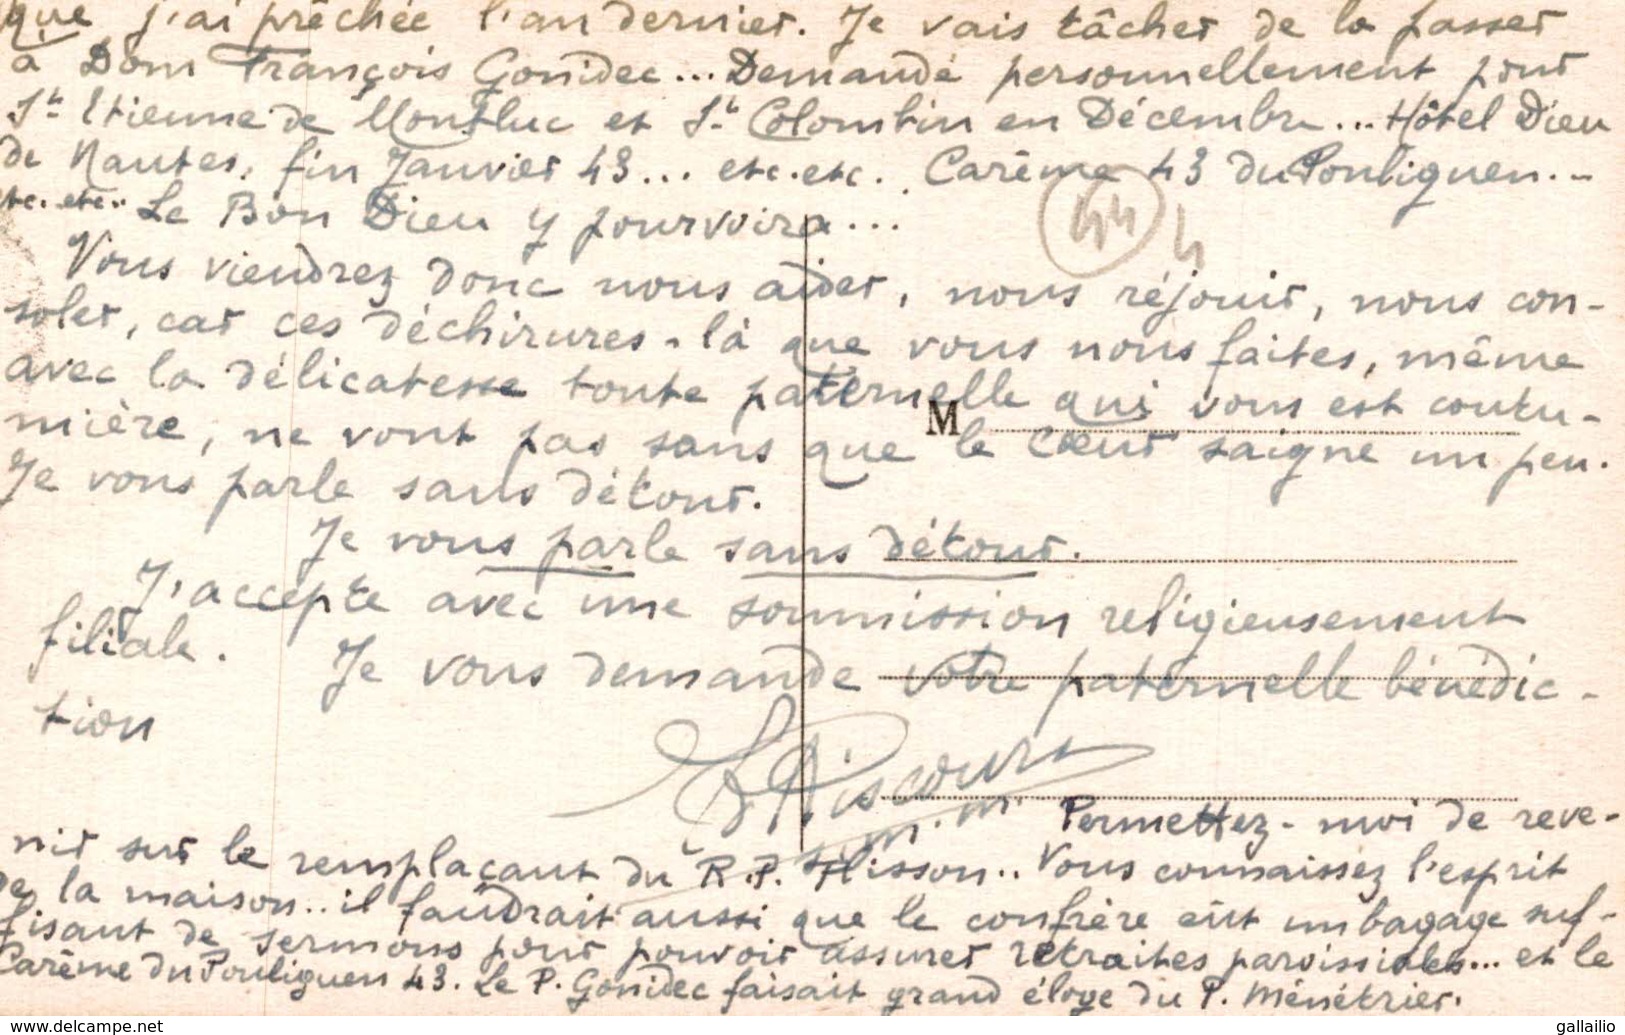 que j'ai prêchée l'an dernier. Je vais tâcher de la passer
à Dom François Gonidec... Demandé personnellement pour
St Etienne de Montluc et St Colombin en Décembre... Hôtel Dieu
de Nantes, fin Janvier 43... etc. etc. Carême 43 du Pouliguen..
etc. etc.. Le Bon Dieu y pourvoira...
44
4
Vous viendrez donc nous aider, nous réjouir, nous con-
soler, car ces déchirures-là que vous nous faites, même
avec la délicatesse toute paternelle qui vous est coutu-
M
mière, ne vont pas sans que le cœur saigne un peu.
Je vous parle sans détour.
Je vous parle sans détour.
J'accepte avec une soumission religieusement
filiale. Je vous demande votre paternelle bénédic-
tion
m.m.
Permettez-moi de reve-
nir sur le remplaçant du R.P. Hisson.. Vous connaissez l'esprit
de la maison.. il faudrait aussi que le confrère eût un bagage suf-
fisant de sermons pour pouvoir assurer retraites paroissiales... et le
Carême du Pouliguen 43. Le P. Gonidec faisait grand éloge du P. Ménétrier.
www.delcampe.net
gallailio